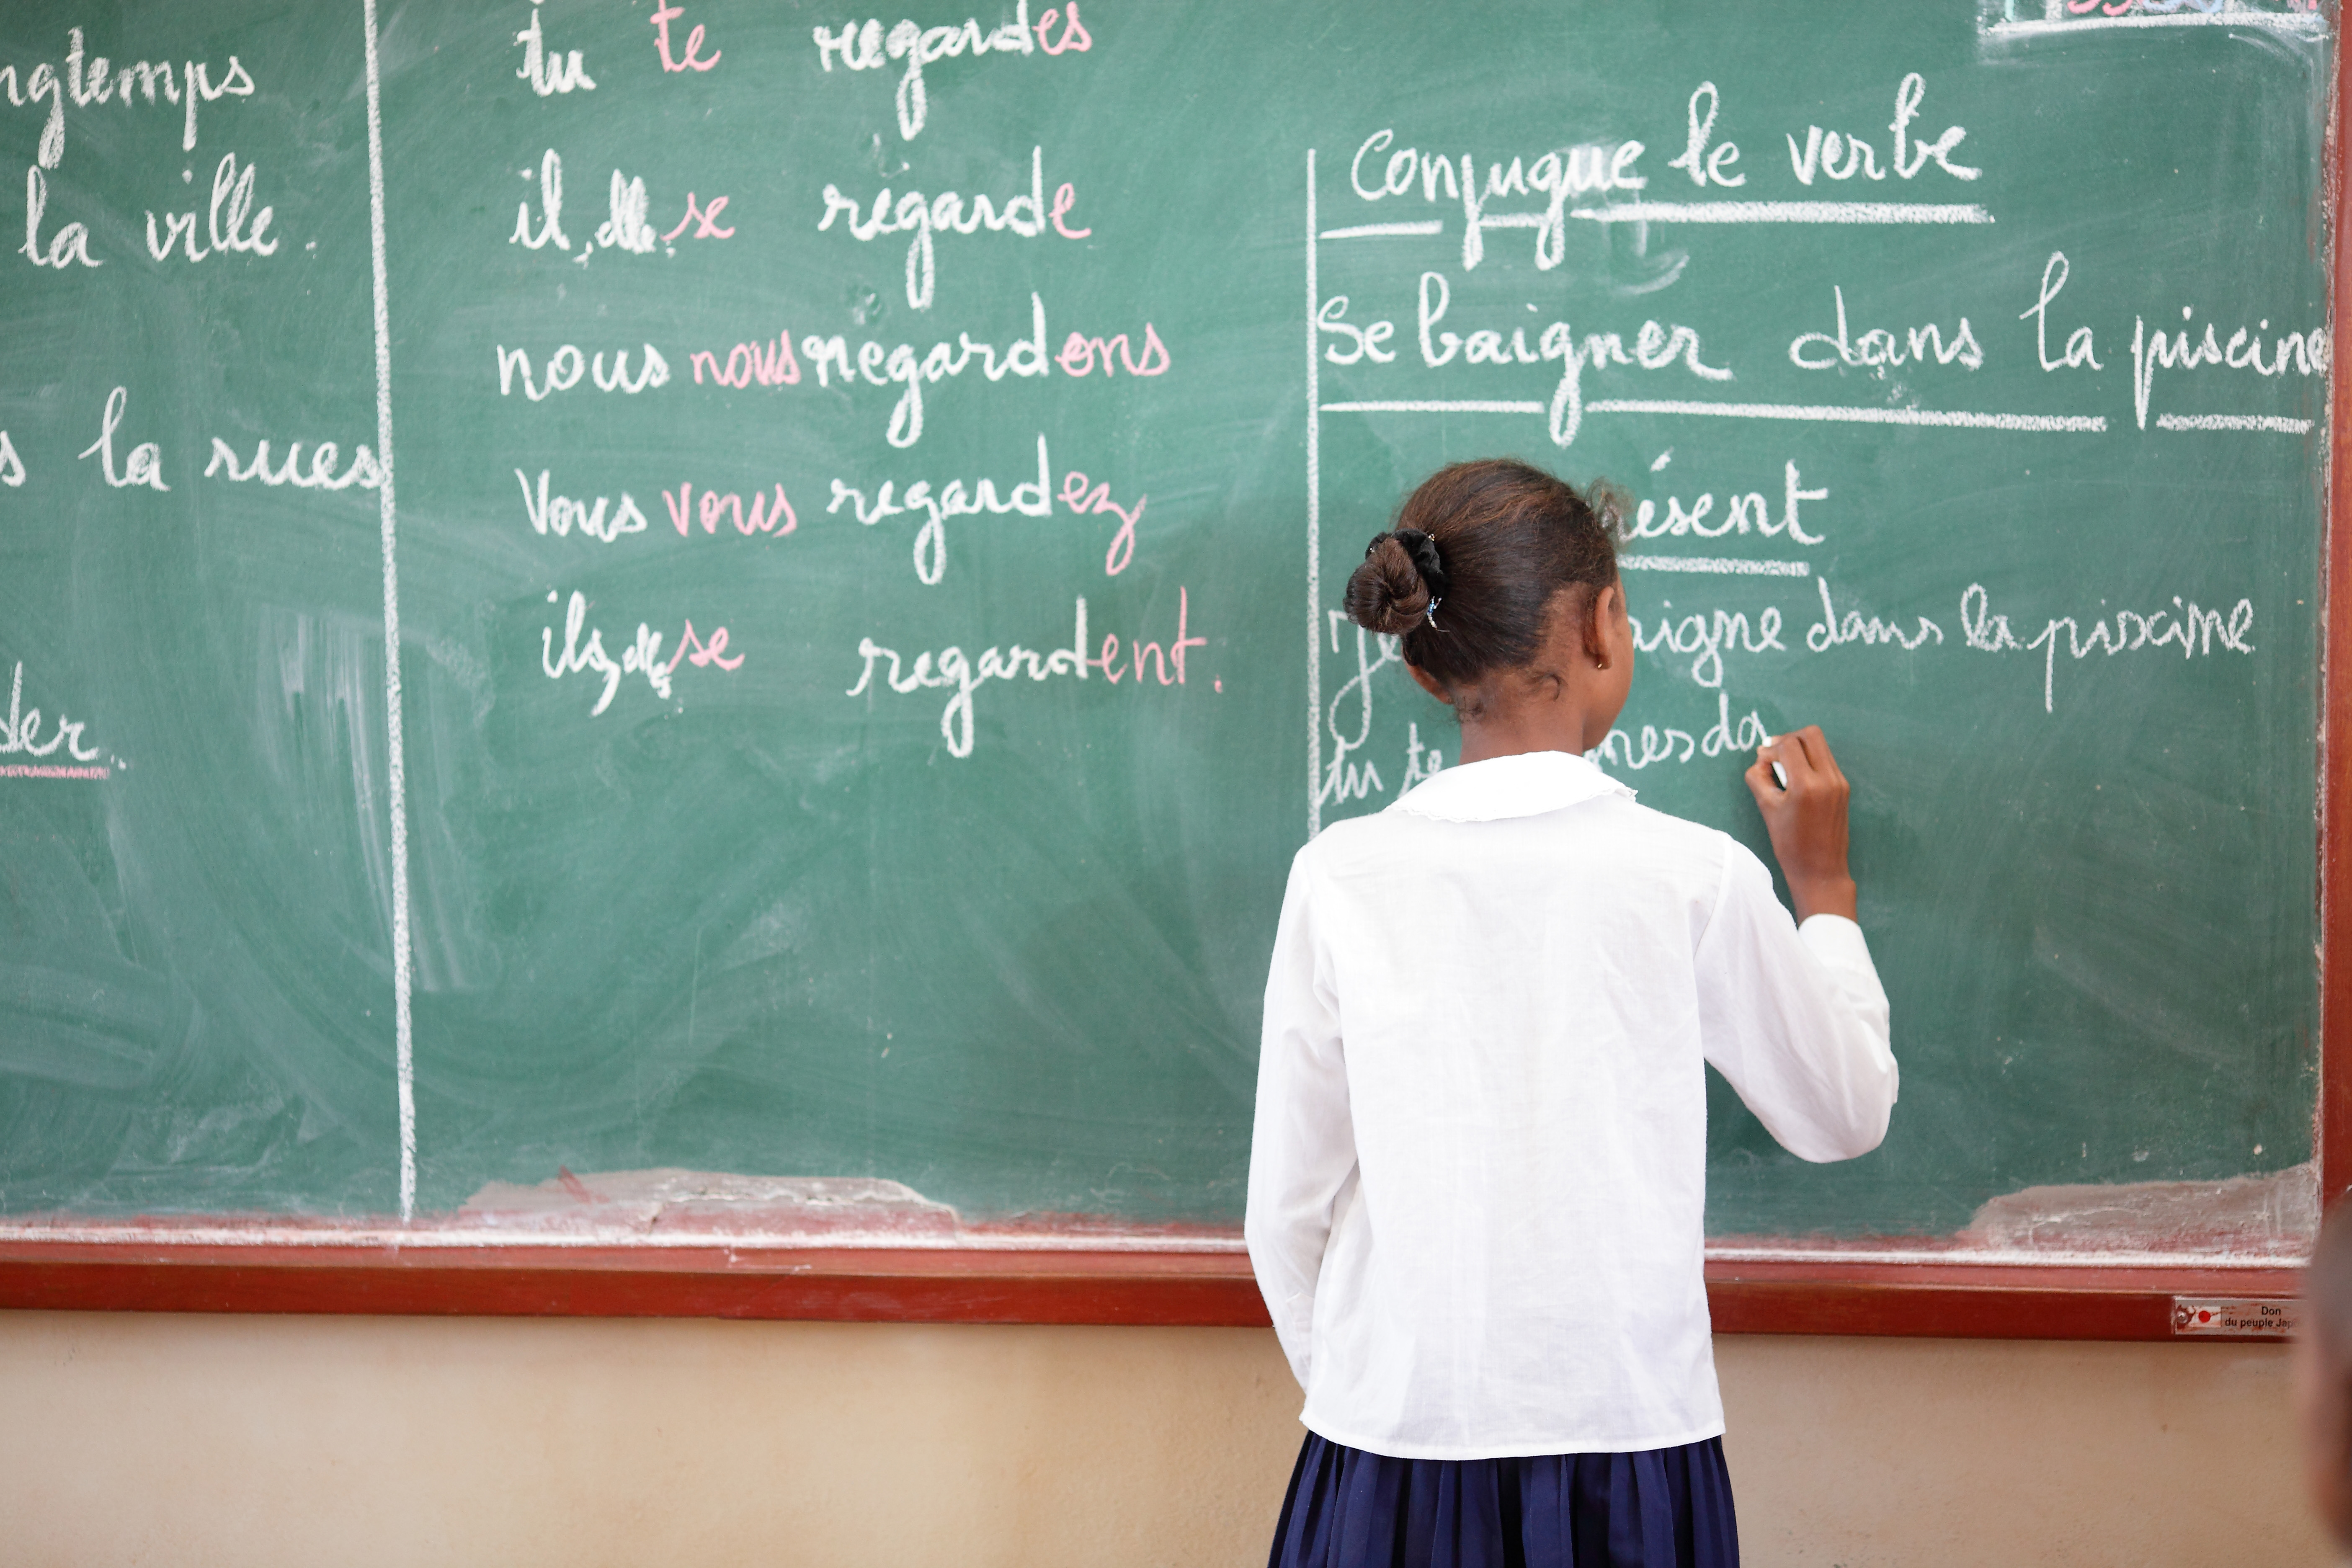 la ville.
la rues
tu te regardes
il, elle se regarde
nous nous regardons
vous vous regardez
ils, elles se regardent.
Conjugue le verbe
Se baigner dans la piscine
Je dans la piscine
tu te
Don
du peuple